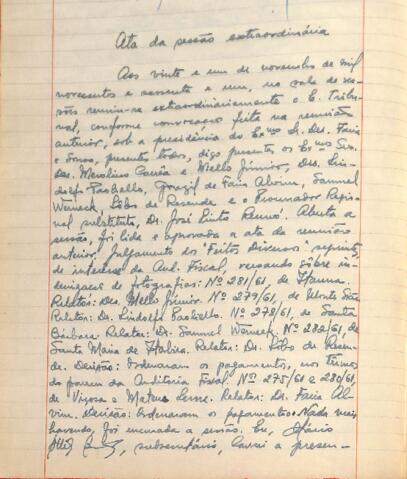 Ata da sessão extraordinária
Aos vinte e um de novembro de mil
novecentos e sessenta e um, na sala de ses-
sões reuniu-se extraordinariamente o E. Tribu-
nal, conforme convocação feita na reunião
anterior, sob a presidência do Exmo Sr. Des. Faria
e Sousa, presentes todos, digo presentes, os Exmos Srs.
Des. Merolino Corrêa e Mello Júnior, Drs. Lin-
dolfo Paoliello, Gonzaga de Faria Alvim, Samuel
Werneck, Lôbo de Resende e o Procurador Regio-
nal substituto, Dr. José Pinto Renno. Aberta a
sessão, foi lida e aprovada a ata da reunião
anterior. Julgamento dos "Feitos Diversos" seguinte,
de interesse da Aud. Fiscal, versando sôbre in-
denização de fotografias: Nº 281/61, de Hanna.
Relator: Des. Mello Júnior. Nº 277/61, de Monte Sião
Relator: Dr. Lindolfo Paoliello. Nº 278/61, de Santa
Bárbara Relator: Dr. Samuel Werneck. Nº 282/61, de
Santa Maria de Itabira. Relator: Dr. Lôbo de Resen-
de. Decisão: Ordenaram os pagamentos, nos têrmos
do parecer da Auditoria Fiscal. Nº 275/61 e 280/61,
de Viçosa e Mateus Leme. Relator: Dr. Faria Al-
vim. Decisão: Ordenaram os pagamentos. Nada mais
havendo, foi encerrada a sessão. Eu,
subsecretário, lavrei a presen-